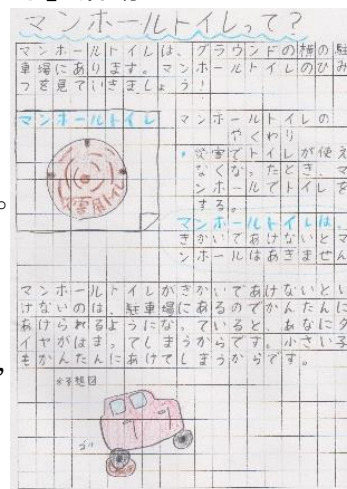 マンホールトイレって?
マンホールトイレは、グラウンドの横の駐
車場にあります。マンホールトイレのひみ
つを見ていきましょう!
マンホールトイレ
災害用トイレ
マンホールトイレの
やくわり
・災害でトイレが使え
なくなったとき、マ
ンホールでトイレを
する。
マンホールトイレは、
きかいであけないとマ
ンホールはあきません
マンホールトイレがきかいであけないとい
けないのは、駐車場にあるのでかんたんに
あけられるようになっていると、あなにタ
イヤがはまってしまうからです。小さい子
もかんたんにあけてしまうからです。
※予想図